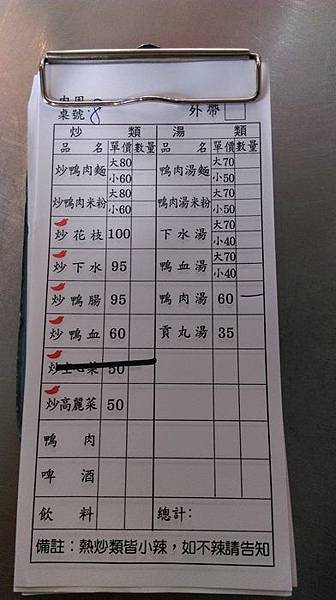 內用
桌號: 8 外帶
炒類 湯類
品名 單價 數量 品名 單價 數量
炒鴨肉麵 大80 小60 鴨肉湯麵 大70 小50
炒鴨肉米粉 大80 小60 鴨肉湯米粉 大70 小50
炒花枝 100 下水湯 大70 小40
炒下水 95 鴨血湯 大70 小40
炒鴨腸 95 鴨肉湯 60 一
炒鴨血 60 貢丸湯 35
炒空心菜 50
炒高麗菜 50
鴨肉
啤酒
飲料 總計:
備註：熱炒類皆小辣，如不辣請告知